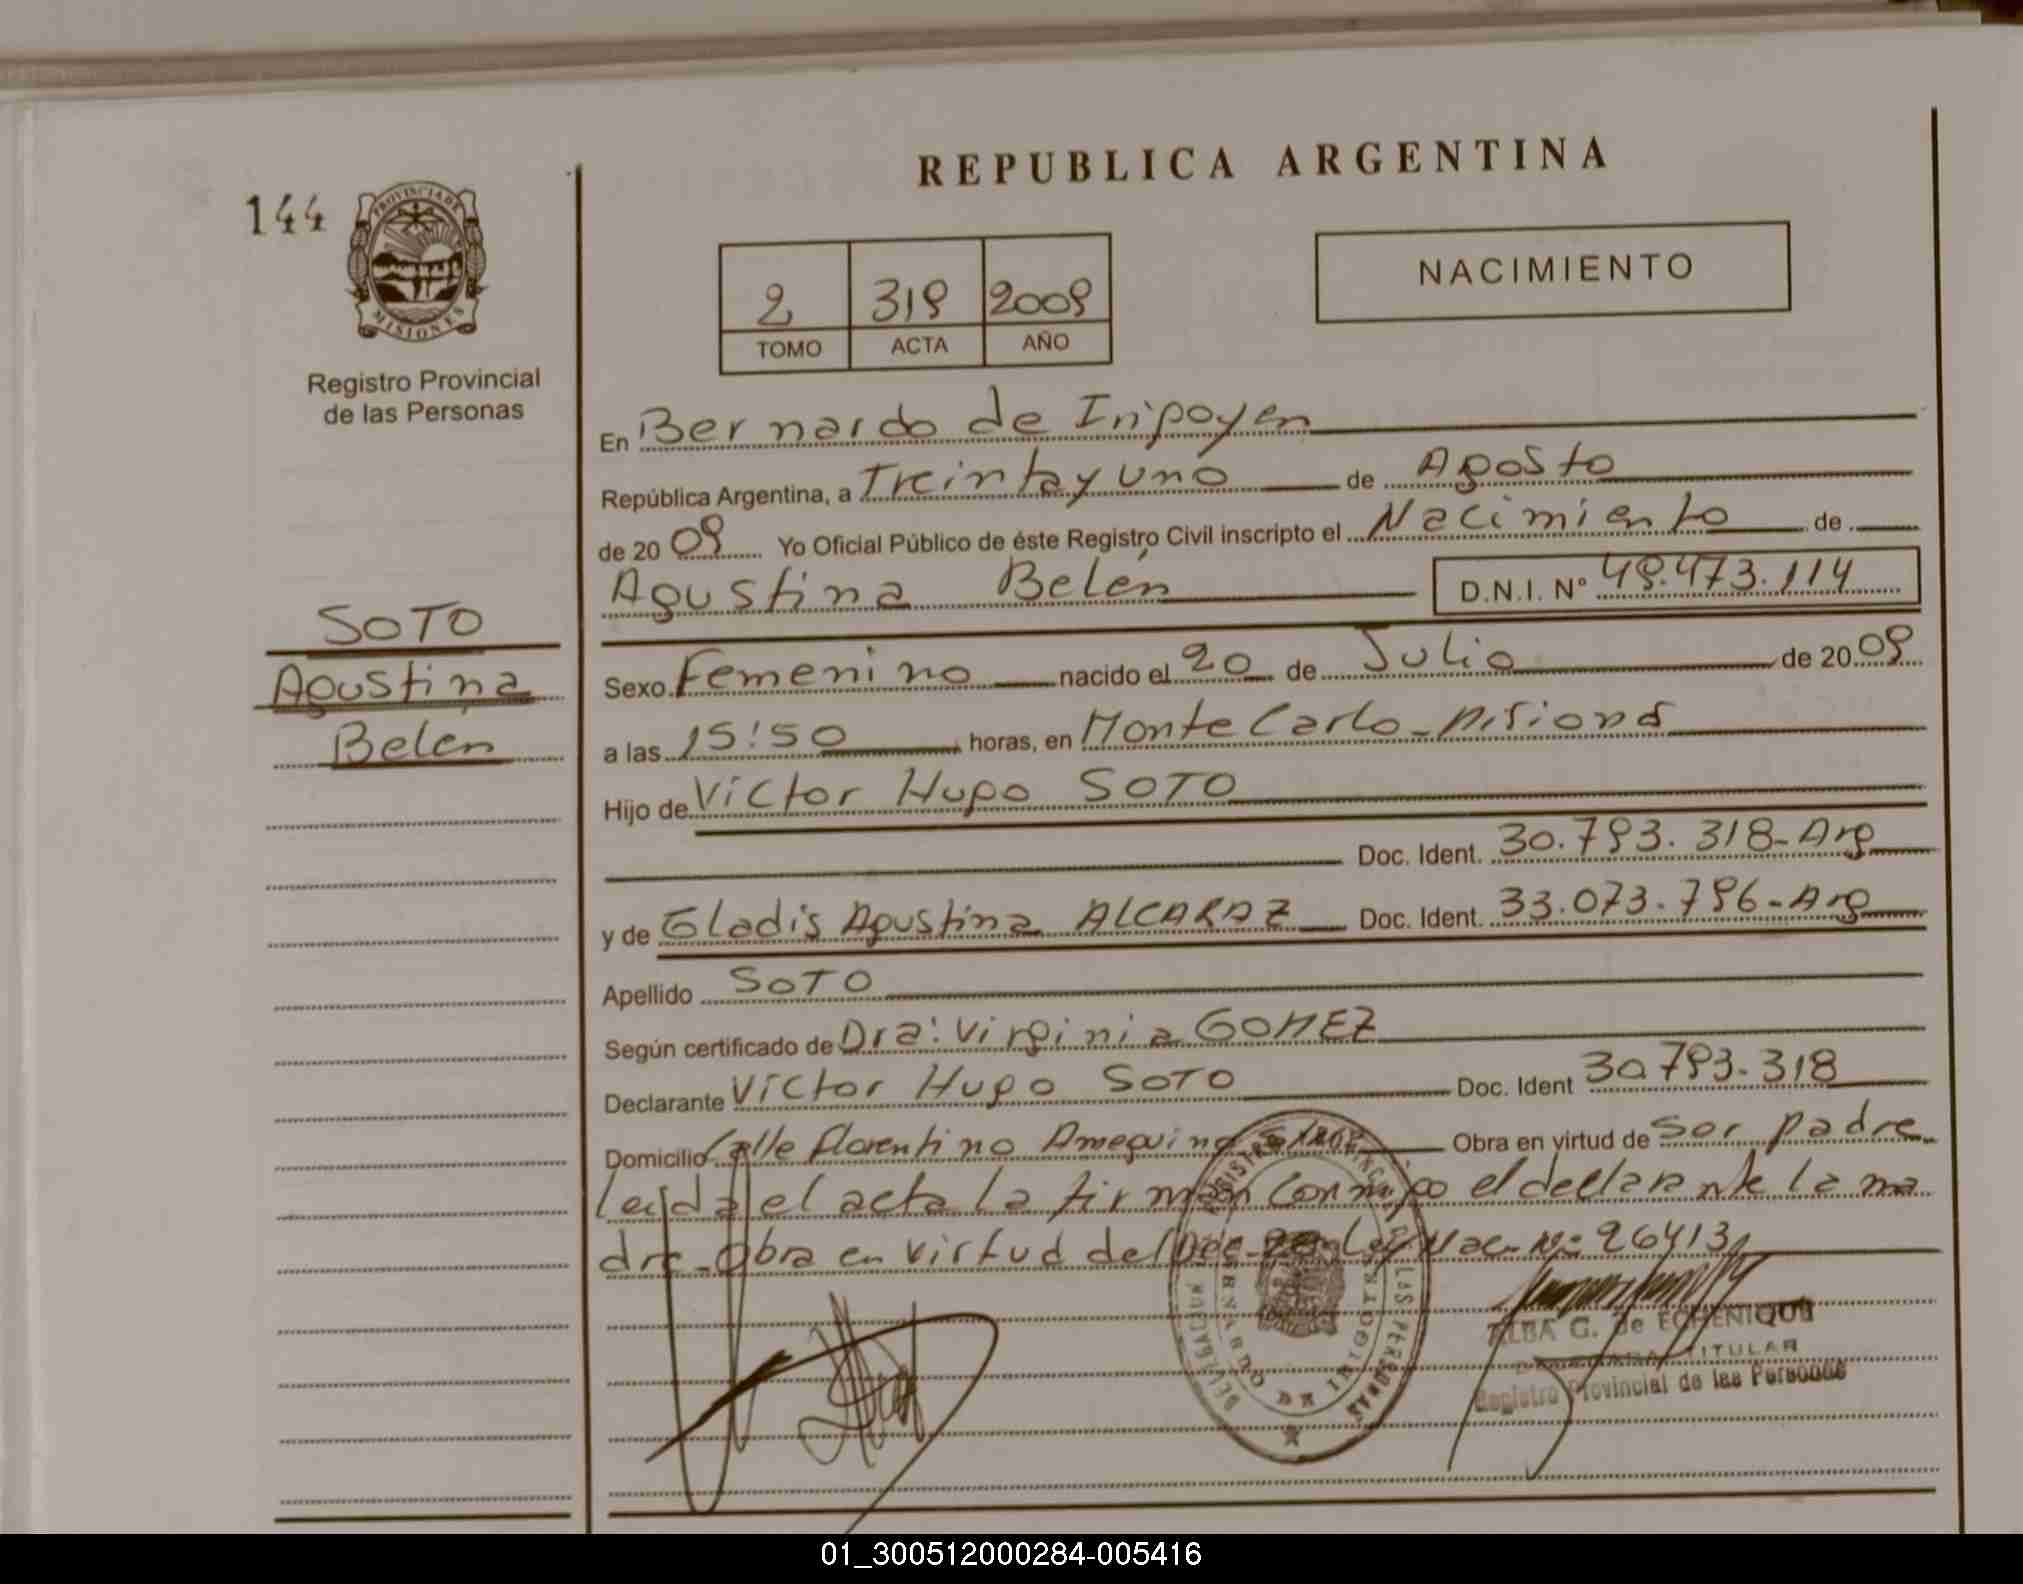 REPUBLICA ARGENTINA
144
PROVINCIA DE
MISIONES
Registro Provincial
de las Personas
NACIMIENTO
2 319 2009
TOMO ACTA AÑO
En Bernardo de Irigoyen
República Argentina, a Treinta y uno de Agosto
de 20 09 Yo Oficial Público de éste Registro Civil inscripto el Nacimiento de
Agustina Belén D.N.I. Nº 49.473.114
SOTO
Agustina
Belén
Sexo Femenino nacido el 20 de Julio de 20 09
a las 15:50 horas, en Monte Carlo - Misiones
Hijo de Víctor Hugo SOTO
Doc. Ident. 30.793.318-Arg
y de Gladis Agustina ALCARAZ Doc. Ident. 33.073.796-Arg
Apellido SOTO
Según certificado de Dra: Virginia GOMEZ
Declarante Víctor Hugo SOTO Doc. Ident 30.793.318
Domicilio Calle Florentino Ameguino Obra en virtud de Ser padre
Leída el acta la firman conmigo el declarante la ma
dre - Obra en virtud del Ley Nac. Nº 26413
REGISTRO PROVINCIAL DE LAS PERSONAS
DELEGACION
BERNARDO DE IRIGOYEN
ALBA G. de ECHENIQUE
TITULAR
Registro Provincial de las Personas
01_300512000284-005416